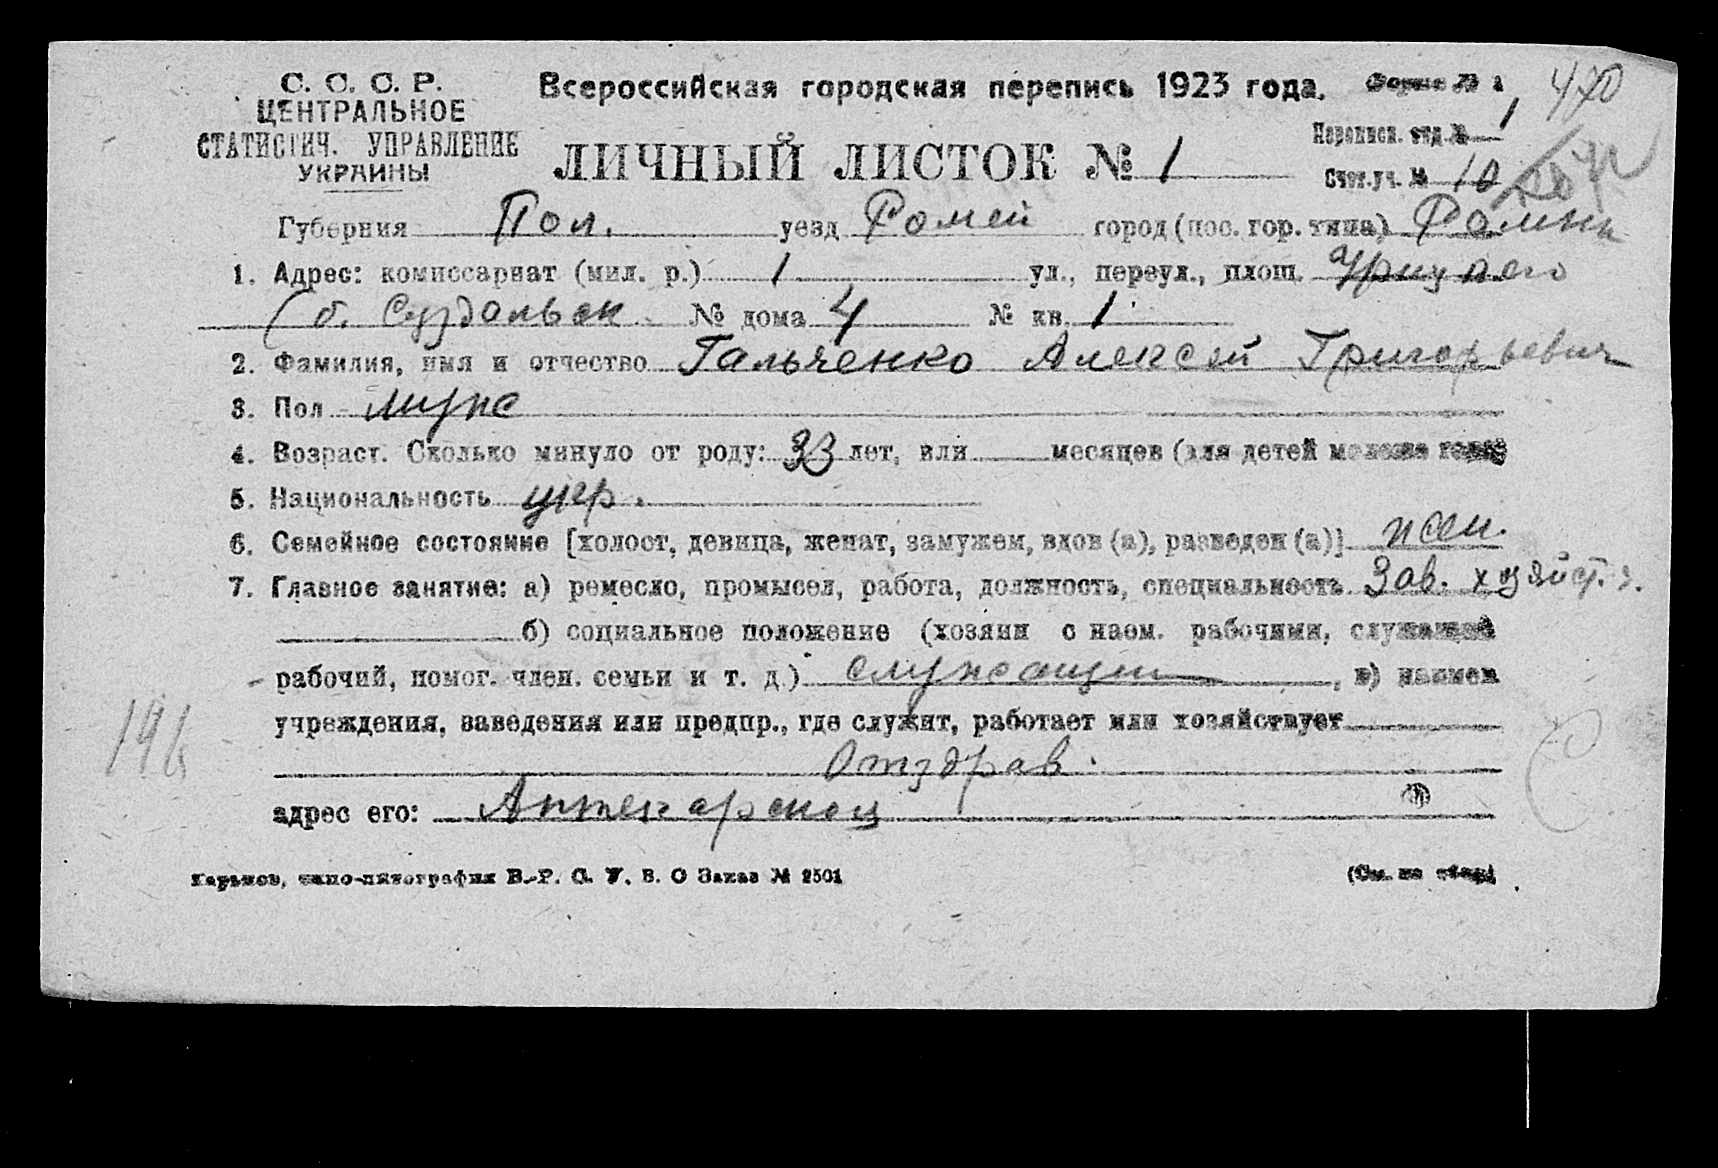 С. С. С. Р.
ЦЕНТРАЛЬНОЕ
СТАТИСТИЧ. УПРАВЛЕНИЕ
УКРАИНЫ
Всероссийская городская перепись 1923 года.
Форма № 470
ЛИЧНЫЙ ЛИСТОК № 1
Переписн. отд. № 1
Счет.уч. № 10
Губерния Пол. уезд Ромен город (пос. гор. типа) Ромны
1. Адрес: комиссариат (мил. р.) 1 ул., переул., площ. Урицкого
(б. Суздальск № дома 4 № кв. 1
2. Фамилия, имя и отчество Гальченко Алексей Григорьевич
3. Пол муж
4. Возраст. Сколько минуло от роду: 33 лет, или месяцев (для детей моложе года)
5. Национальность укр.
6. Семейное состояние [холост, девица, женат, замужем, вдов (а), разведен (а)] жен.
7. Главное занятие: а) ремесло, промысел, работа, должность, специальность Зав. хозяйст.
б) социальное положение (хозяин с наем. рабочими, служащий
рабочий, помог. член. семьи и т. д.) служащий, в) наимен
учреждения, заведения или предпр., где служит, работает или хозяйствует
Отздрав.
адрес его: Аптекарской
196
Харьков, типо-литография В.-Р. С. У. В. О Заказ № 2501
(См. на обор)